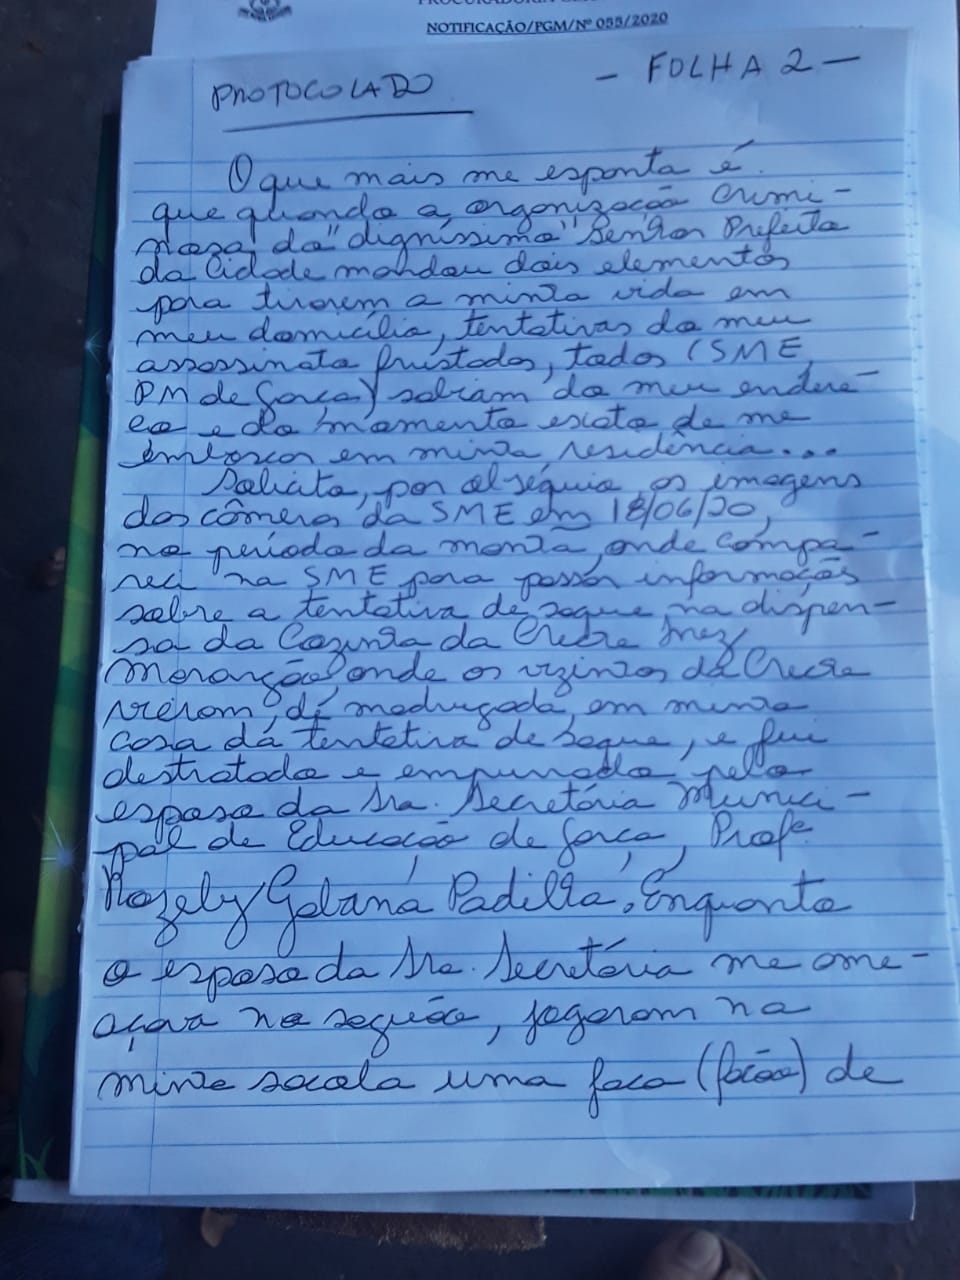 NOTIFICAÇÃO/PGM/Nº 055/2020
PROTOCOLADO
- FOLHA 2 -
O que mais me esponta é
que quando a organização crimi-
noza do "digníssimo" Senhor Prefeito
da Cidade mandou dois elementos
para tirarem a minha vida em
meu domicílio, tentativas do meu
assassinato frustados, todos (SME,
PM de Garça) sabiam do meu endere-
ço e do momento exato de me
emboscar em minha residência...
Solicito, por obséquio, as imagens
das câmeras da SME em 18/06/20,
no período da manhã, onde compa-
reci na SME para passar informações
sobre a tentativa de saque na dispen-
sa da Cozinha da Creche Inez
Marangão, onde os vizinhos da Creche
vieram, de madrugada, em minha
casa da tentativa de saque, e fui
destratado e empurrado pelo
esposo da Sra. Secretária Munici-
pal de Educação de Garça, Profª
Rozely Galana Padilha. Enquanto
o esposo da Sra. Secretária me ame-
açava no saguão, jogaram na
minha sacola uma faca (facão) de